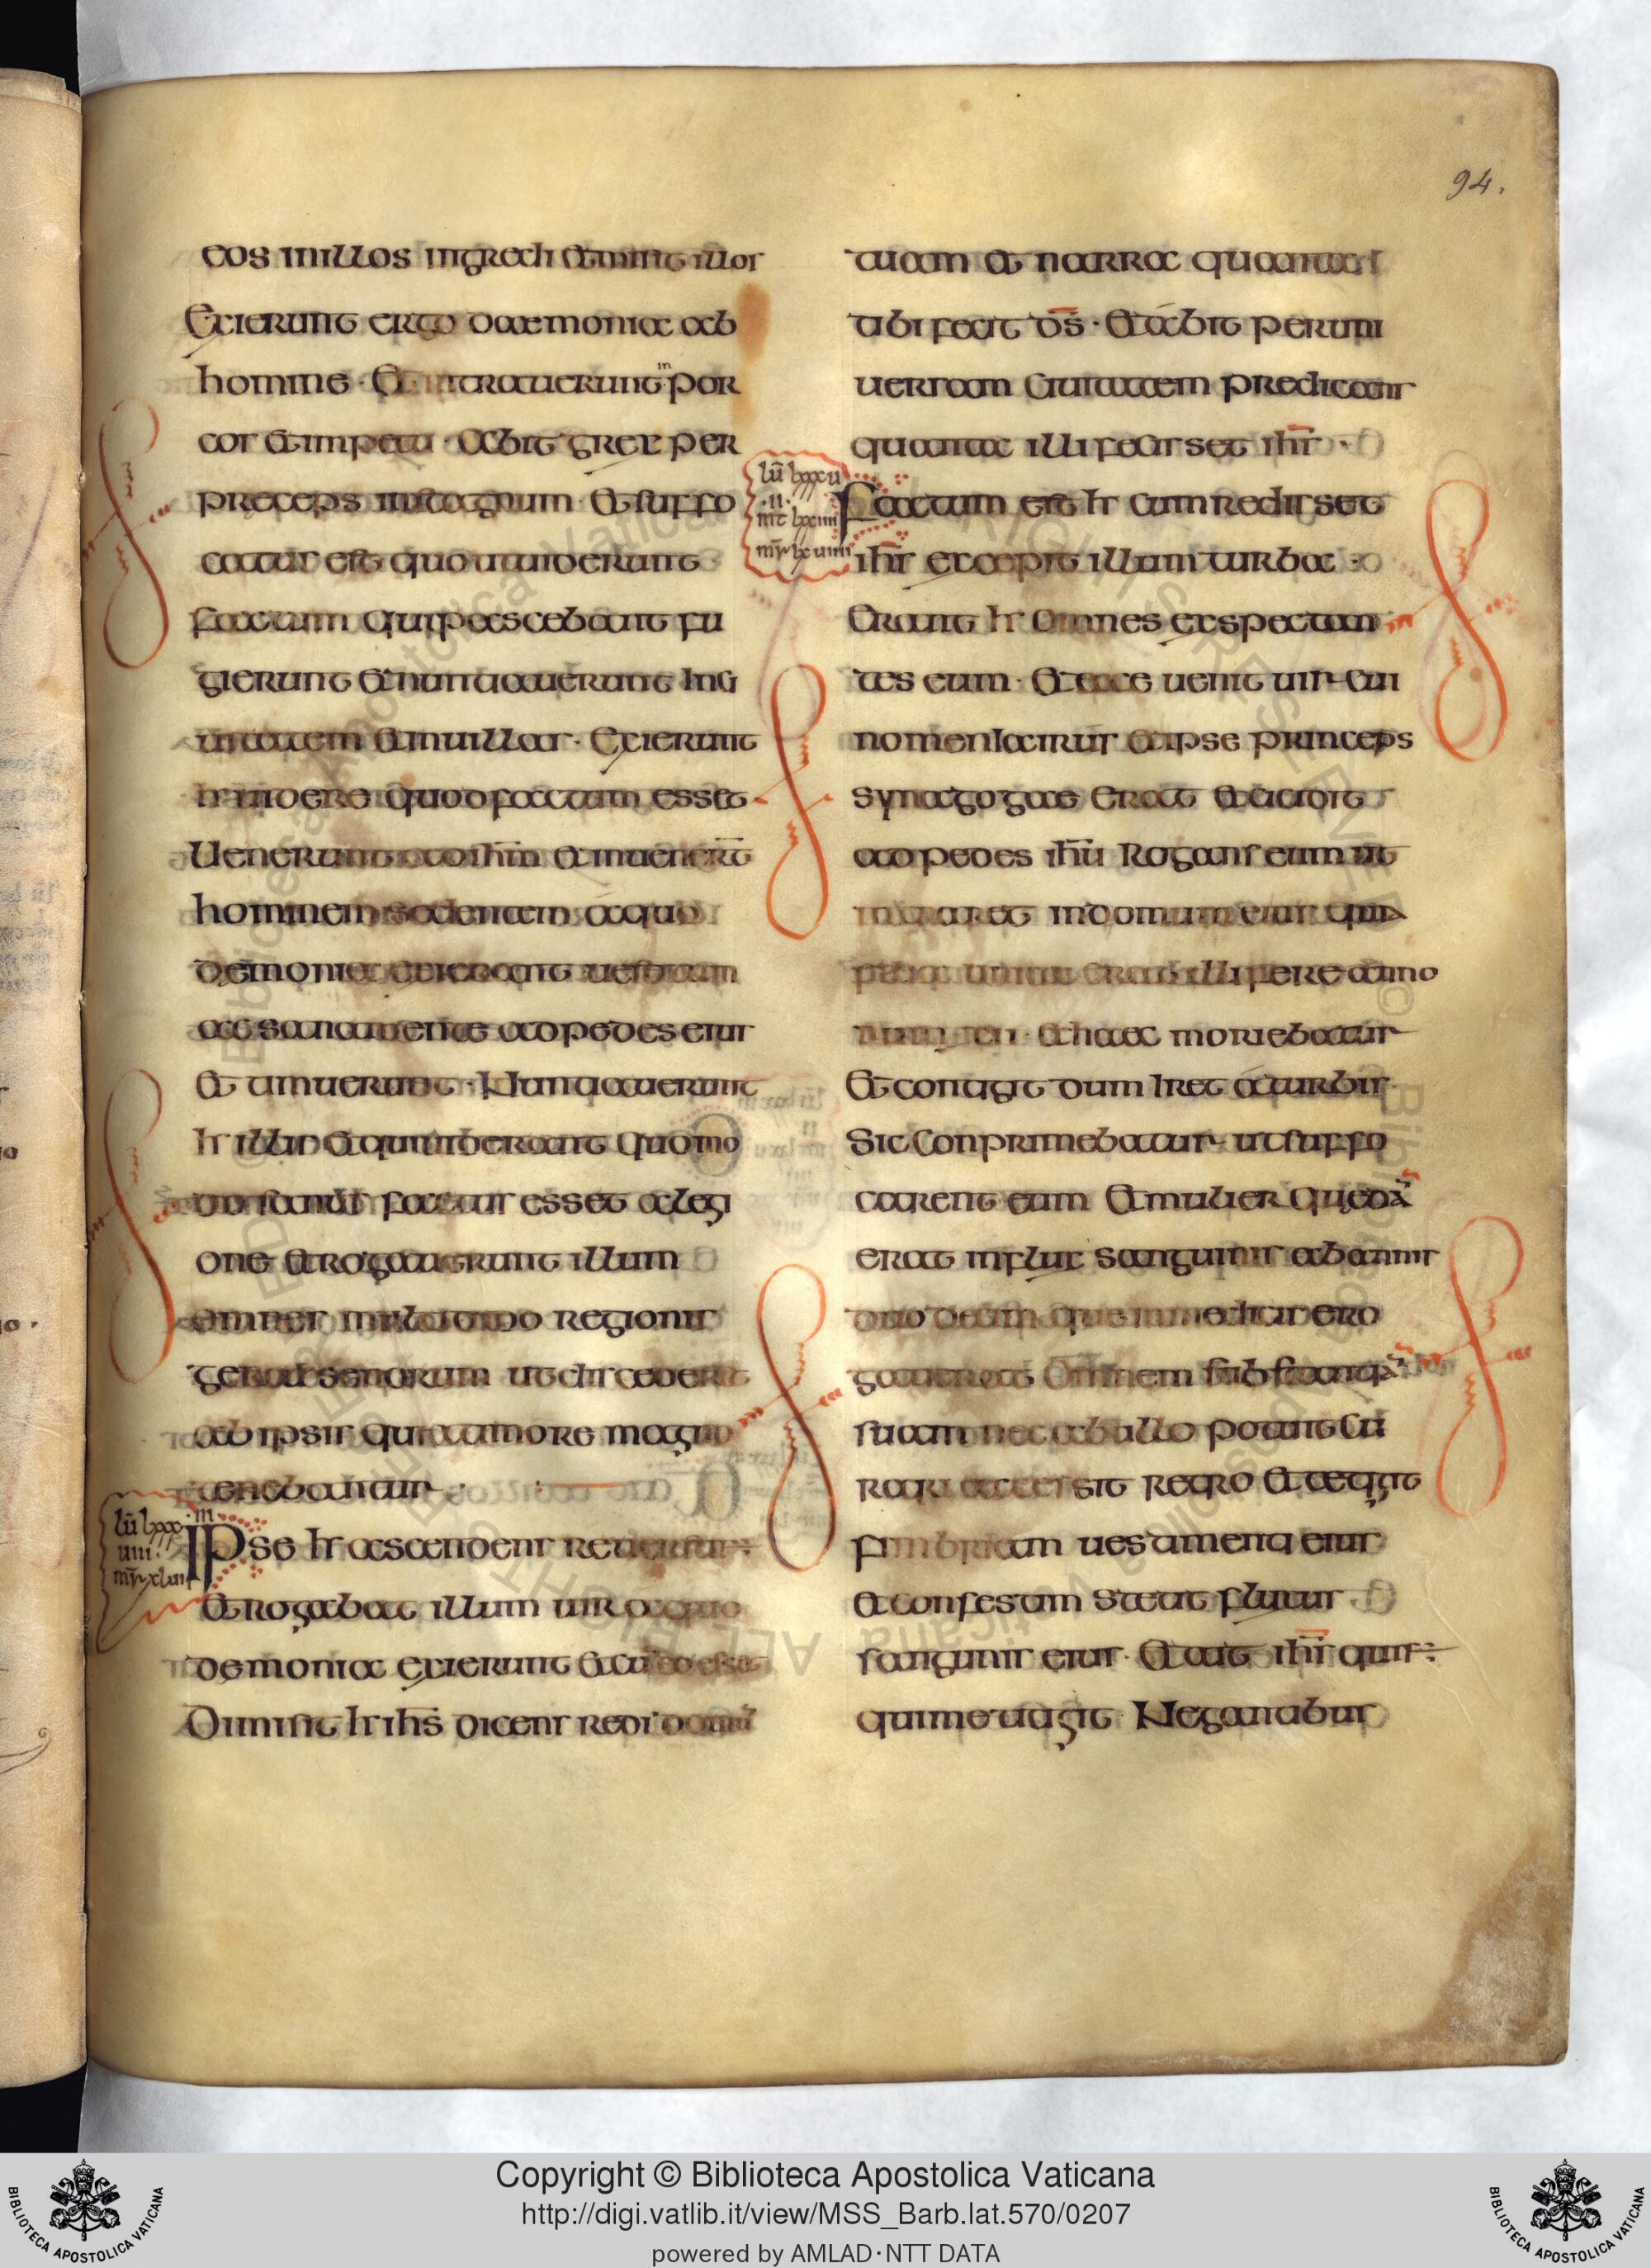 94.
eos in illos ingredi et misit illos
Exierunt ergo daemonia ab
homine · Et intrauerunt in por
cos et impetu · Abiit grex per
preceps in stagnum · Et suffo
catus est quo ut uiderunt
factum qui pascebant fu
gierunt et nuntiauerunt in ci
uitatem et in uillas · Exierunt
h̄ uidere quod factum esset
Uenerunt ad ih̄m et inuenert̄
hominem sedentem a quo
demonia exierant uestitum
ac sana mente ad pedes eius
et timuerunt · Nuntiauerunt
h̄ illis et qui uiderant quomo
do sanus factus esset a legi
one et rogauerunt illum
omnes multitudo regionis
gerasenorum ut discederet
ab ipsis quia timore magno
tenebantur
lū lxxx
uiii
mr̄ xluiii
Ipse h̄ ascendens reuersus
Et rogabat illum uir a quo
demonia exierunt ut cū eo esset
Dimisit h̄ ih̄s dicens redi domū
tuam et narra quanta
tibi fecit d̄s · Et abiit per uni
uersam ciuitatem predicans
quanta illi fecisset ih̄s
lū lxxxu
·ii·
mt lxxiiii
mr̄ xluiiii
Factum est h̄ cum redisset
ih̄s excepit illum turba
Erant h̄ omnes exspectan
tes eum · Et ecce uenit uir cui
nomen Iairus et ipse princeps
synagogae erat et cecidit
ad pedes ih̄u rogans eum ut
intraret in domum eius quia
filia unica erat illi fere anno
rum xii · et haec moriebatur
Et contigit dum iret a turbis
Sic conprimebatur ut suffo
carent eum Et mulier quedā
erat in fluxu sanguinis ab annis
duodecim que in medicis ero
gauerat omnem substantiā
suam nec ab ullo potuit cu
rari accessit retro et tetigit
fimbriam uestimenti eius
et confestim stetit fluxus
sanguinis eius · Et ait ih̄s quis
qui me tigit Negantibus
Copyright © Biblioteca Apostolica Vaticana
http://digi.vatlib.it/view/MSS_Barb.lat.570/0207
powered by AMLAD·NTT DATA
BIBLIOTECA APOSTOLICA VATICANA
BIBLIOTECA APOSTOLICA VATICANA